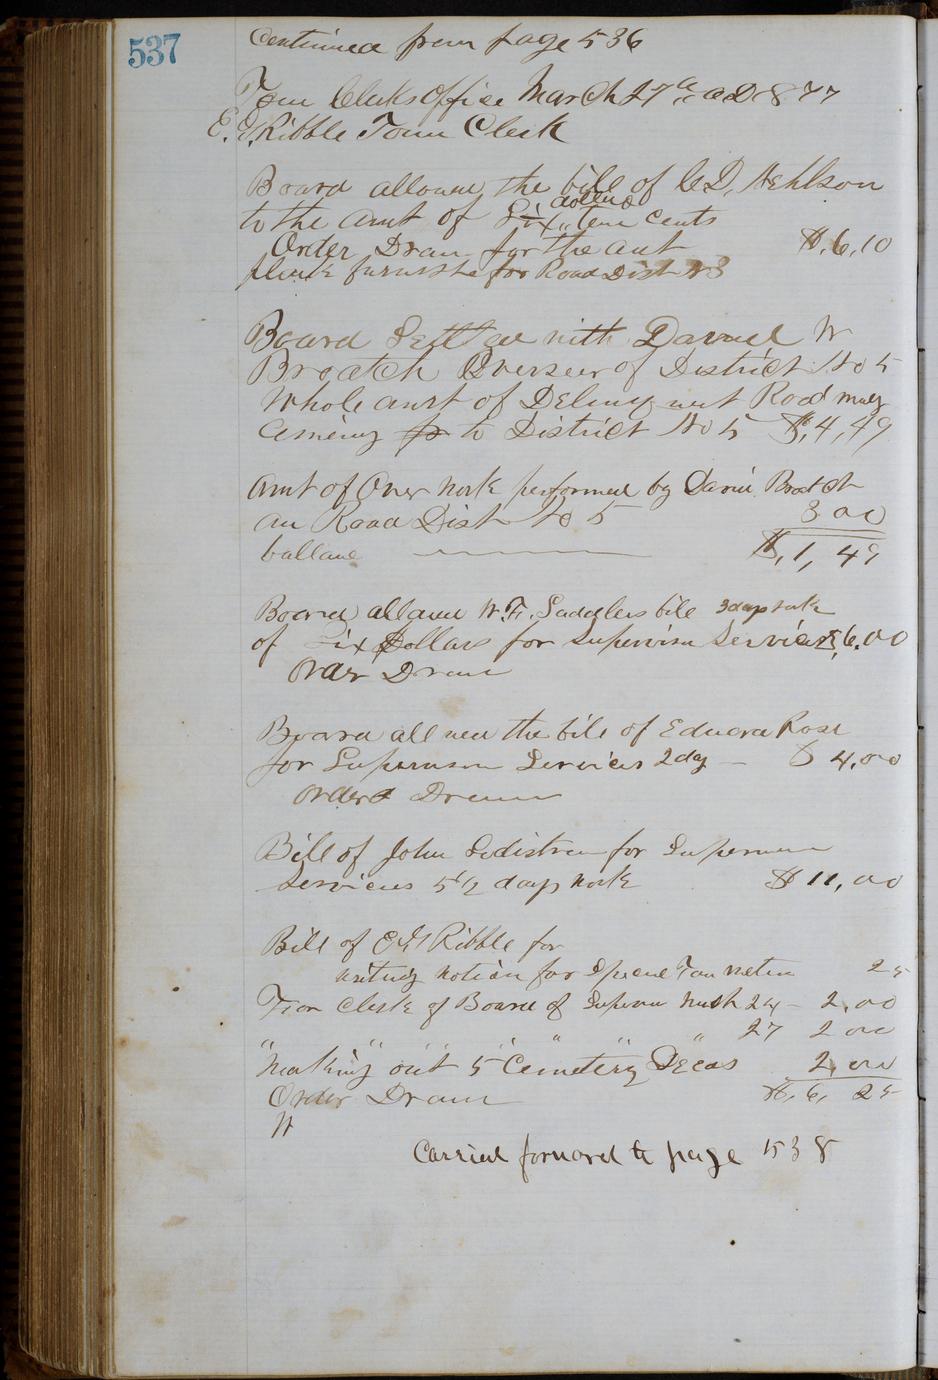 537
Continued from page 536
Town Clerks Office March 27th AD 1877
E. Ribble Town Clerk
Board allowed the bill of C D,
dollars
to the amt of Six,, ten cents
Order Drawn for the amt $.6,10
plank furnishe for Road Dist N 3
Board Settled with Daniel W
Broatch Overseer of District No 5
Whole amt of Delinquent Road
Comeing to District No 5 $,4,49
Amt of Over Work performed by Daniel Broatch
on Road Dist No 5 3 00
ballance $,1,49
Board allowed W. F. Saddlers bill 3 days work
of Six Dollars for Supervisor Services $,6.00
Order Drawn
Board allowed the bill of Edward Rose
for Supervisor Services 2 day — $ 4.00
Order Drawn
Bill of John for Supervisor
Services 5 1/2 days Work $ 11,00
Bill of E Ribble for
writing notice for Town 25
For Clerk of Board of 24 — 2,00
" " " " " " 27 2 00
Making out 5 Cemetery Deeds 2,00
Order Drawn $,6, 25
W
Carried forward to page 538